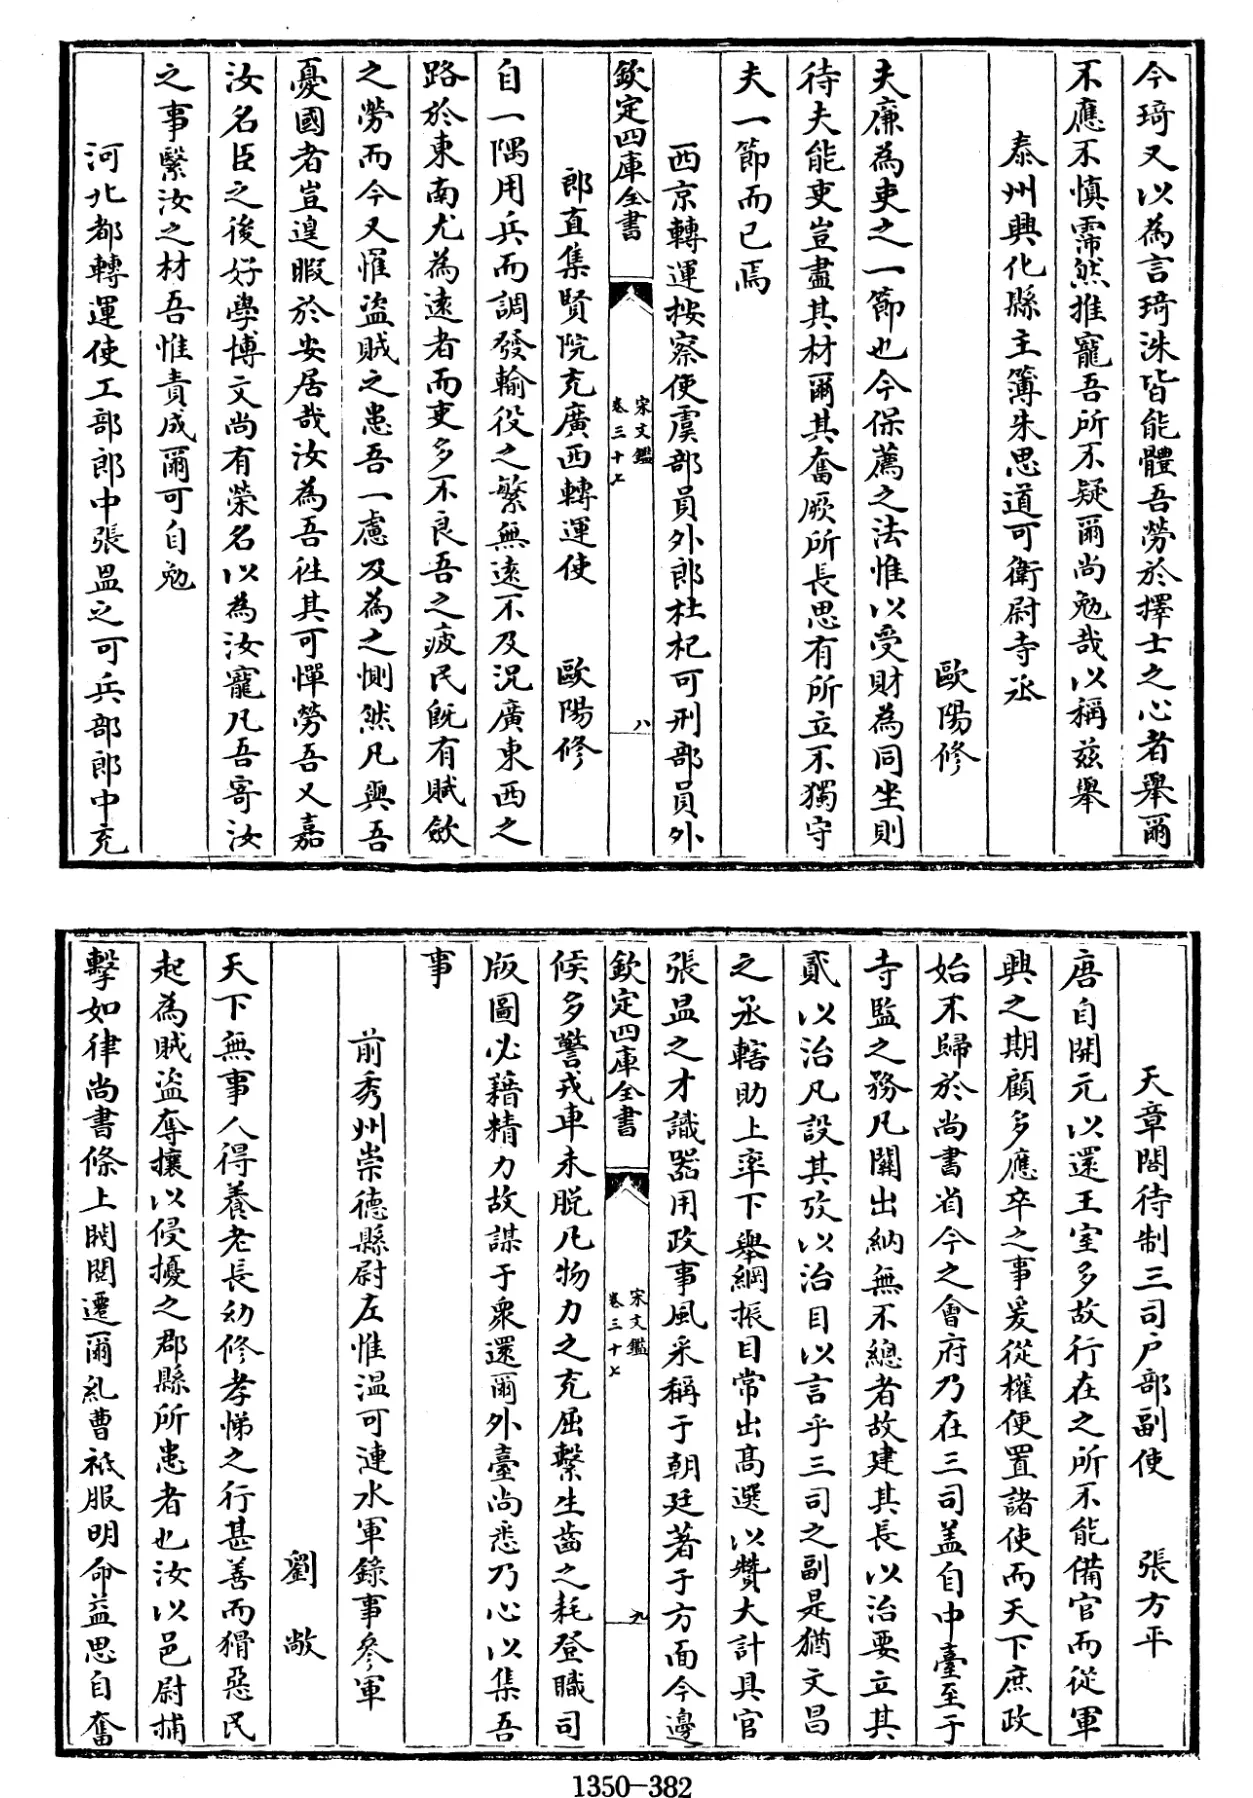 今琦又以為言琦洙皆能體吾勞於擇士之心者舉爾
不應不慎霈然推寵吾所不疑爾尚勉哉以稱茲舉
泰州興化縣主簿朱思道可衛尉寺丞
歐陽修
夫廉為吏之一節也今保薦之法惟以受財為同坐則
待夫能吏豈盡其材爾其奮厥所長思有所立不獨守
夫一節而已焉
西京轉運按察使虞部員外郎杜杞可刑部員外
欽定四庫全書
宋文鑑
卷三十七
八
郎直集賢院充廣西轉運使 歐陽修
自一隅用兵而調發輸役之繁無遠不及況廣東西之
路於東南尤為遠者而吏多不良吾之疲民旣有賦斂
之勞而今又罹盜賊之患吾一慮及為之惻然凡與吾
憂國者豈遑暇於安居哉汝為吾徃其可憚勞吾乂嘉
汝名臣之後好學博文尚有榮名以為汝寵凡吾寄汝
之事繄汝之材吾惟責成爾可自勉
河北都轉運使工部郎中張昷之可兵部郎中充
天章閣待制三司户部副使 張方平
唐自開元以還王室多故行在之所不能備官而從軍
興之期顧多應卒之事爰從權便置諸使而天下庶政
始不歸於尚書省今之會府乃在三司盖自中臺至于
寺監之務凡關出納無不總者故建其長以治要立其
貳以治凡設其攷以治目以言乎三司之副是猶文昌
之丞轄助上率下舉綱振目常出高選以贊大計具官
張昷之才識器用政事風采稱于朝廷著于方面今邊
欽定四庫全書
宋文鑑
卷三十七
九
候多警戎車未脱凡物力之充屈繫生齒之耗登職司
版圖必藉精力故謀于衆還爾外臺尚悉乃心以集吾
事
前秀州崇德縣尉左惟温可連水軍錄事參軍
劉敞
天下無事人得養老長幼修孝悌之行甚善而猾惡民
起為賊盜奪攘以侵擾之郡縣所患者也汝以邑尉捕
擊如律尚書條上閥閱遷爾糺曹祗服明命益思自奮
1350-382